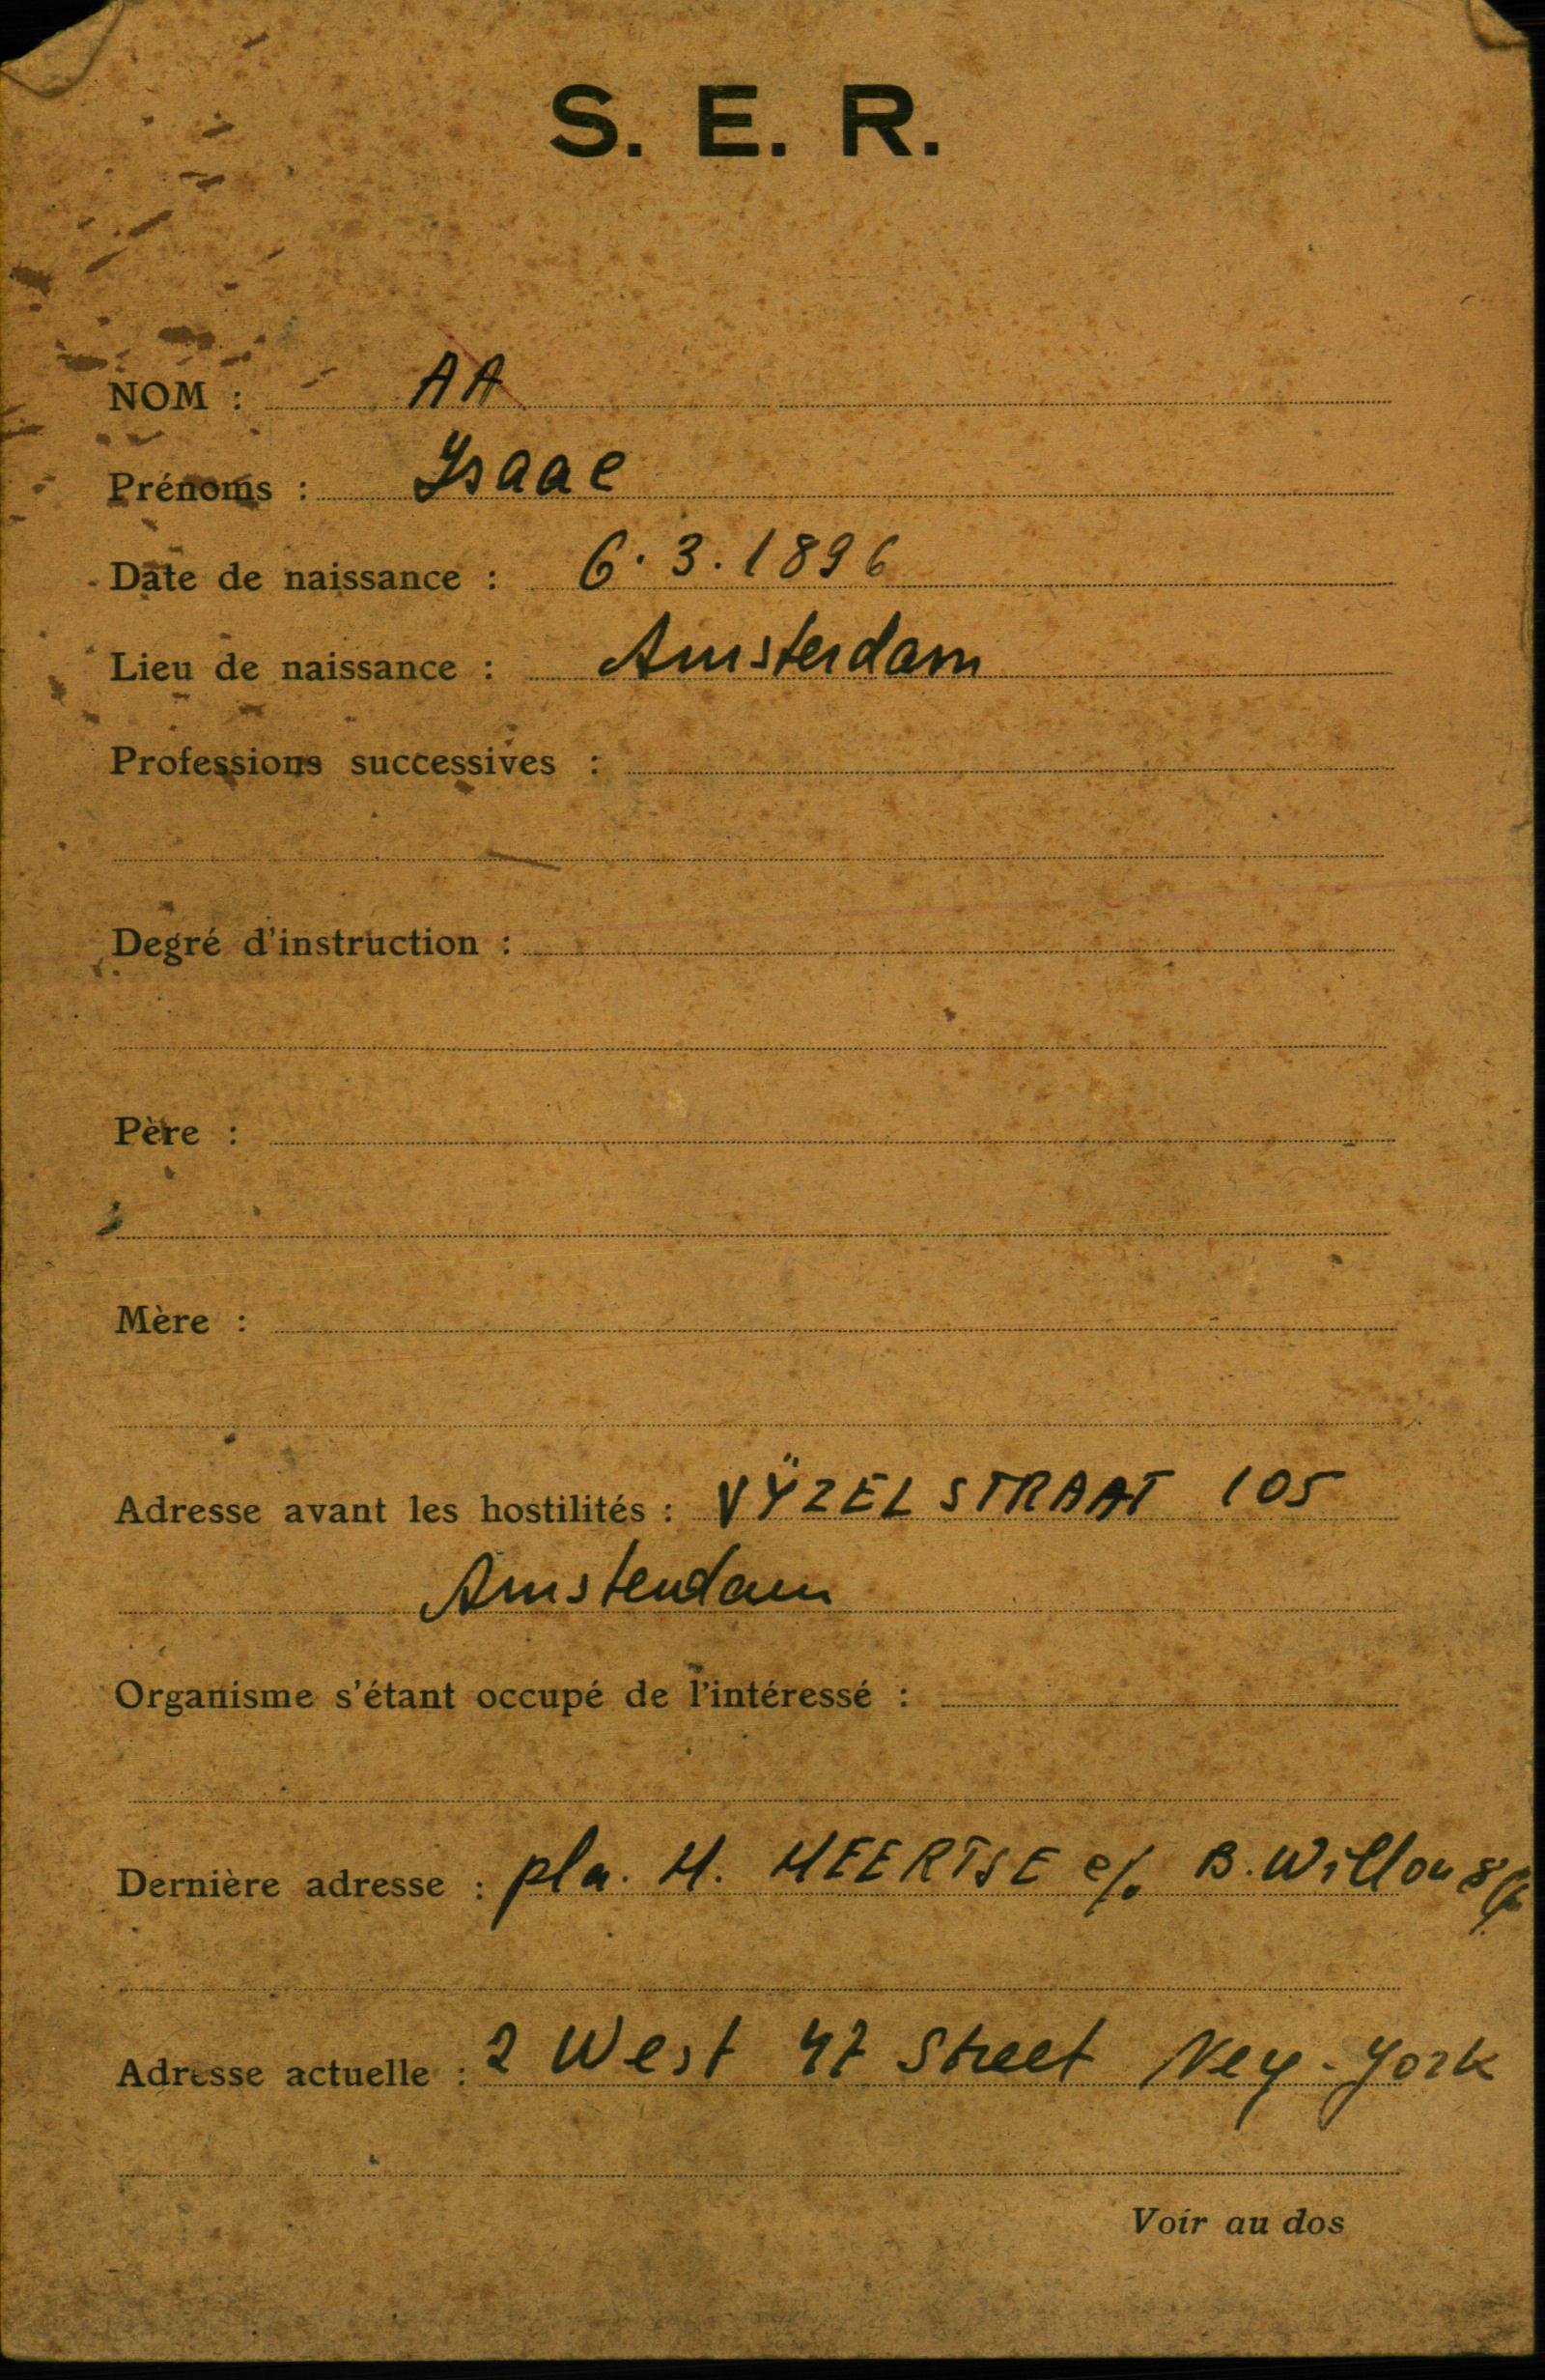 S. E. R.
NOM : AA
Prénoms : Isaac
Date de naissance : 6.3.1896
Lieu de naissance : Amsterdam
Professions successives :
Degré d'instruction :
Père :
Mère :
Adresse avant les hostilités : VŸZELSTRAAT 105
Amsterdam
Organisme s'étant occupé de l'intéressé :
Dernière adresse : pla. H. HEERTSE c/. B.
Adresse actuelle : 2 West 47 Street Ney-York
Voir au dos